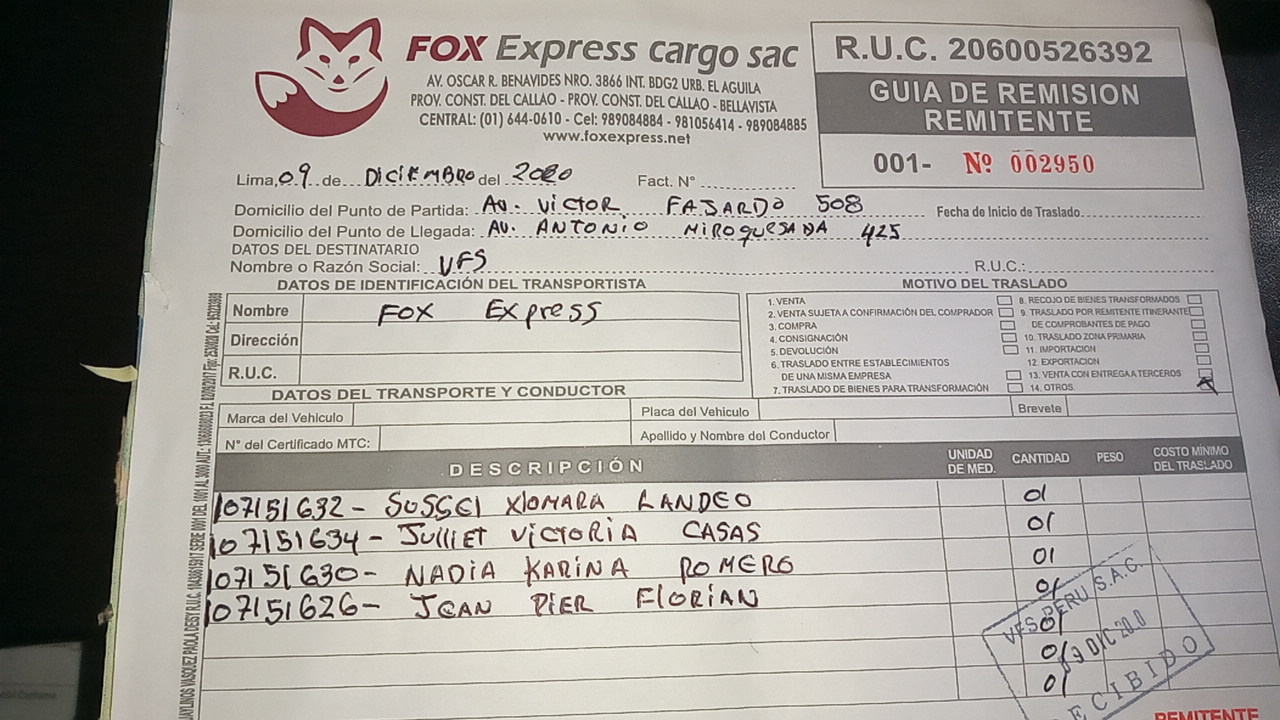 FOX Express cargo sac
AV. OSCAR R. BENAVIDES NRO. 3866 INT. BDG2 URB. EL AGUILA
PROV. CONST. DEL CALLAO - PROV. CONST. DEL CALLAO - BELLAVISTA
CENTRAL: (01) 644-0610 - Cel: 989084884 - 981056414 - 989084885
www.foxexpress.net
R.U.C. 20600526392
GUIA DE REMISION
REMITENTE
001- Nº 002950
Lima, 09 de DICIEMBRO del 2020 Fact. N°
Domicilio del Punto de Partida: AV. VICTOR FAJARDO 508 Fecha de Inicio de Traslado
Domicilio del Punto de Llegada: AV. ANTONIO MIROQUESADA 425
DATOS DEL DESTINATARIO
Nombre o Razón Social: VFS R.U.C.:
DATOS DE IDENTIFICACIÓN DEL TRANSPORTISTA
Nombre FOX Express
Dirección
R.U.C.
MOTIVO DEL TRASLADO
1. VENTA
2. VENTA SUJETA A CONFIRMACIÓN DEL COMPRADOR
3. COMPRA
4. CONSIGNACIÓN
5. DEVOLUCIÓN
6. TRASLADO ENTRE ESTABLECIMIENTOS
DE UNA MISMA EMPRESA
7. TRASLADO DE BIENES PARA TRANSFORMACIÓN
8. RECOJO DE BIENES TRANSFORMADOS
9. TRASLADO POR REMITENTE ITINERANTE
DE COMPROBANTES DE PAGO
10. TRASLADO ZONA PRIMARIA
11. IMPORTACION
12. EXPORTACION
13. VENTA CON ENTREGA A TERCEROS
14. OTROS
DATOS DEL TRANSPORTE Y CONDUCTOR
Marca del Vehiculo Placa del Vehiculo Brevete
N° del Certificado MTC: Apellido y Nombre del Conductor
DESCRIPCIÓN UNIDAD DE MED. CANTIDAD PESO COSTO MÍNIMO DEL TRASLADO
107151632- SUSSCI XIOMARA LANDEO 01
107151634- JULLIET VICTORIA CASAS 01
107151630- NADIA KARINA ROMERO 01
107151626- JEAN PIER FLORIAN 01
01
01
01
VFS PERU S.A.C.
DIC 20
RECIBIDO
REMITENTE